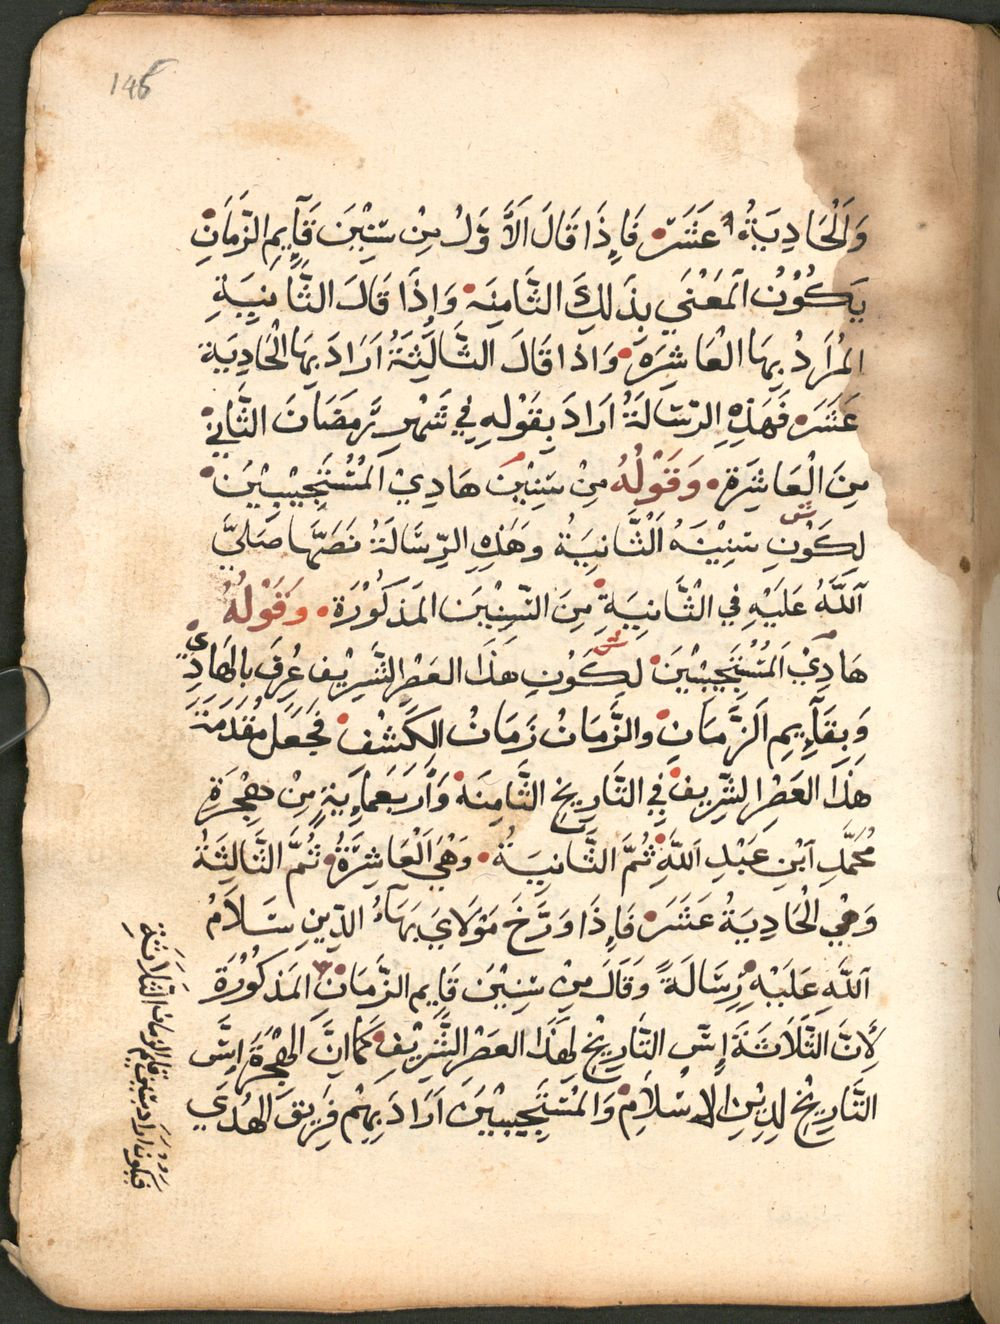 146
وَالْحَادِيَةُ عَشَرَ فَإِذَا قَالَ الأَوَّلُ مِنْ سِنِيْنَ قَآيِمِ الزَّمَانِ
يَكُوْنُ الْمَعْنَى بِذَلِكَ الثَّامِنَة وَإِذَا قَالَ الثَّانِيَةِ
المُرَادْ بِهَا الْعَاشِرَة وَاذا قَالَ الثَّالِثَةُ اَرَادَ بِهَا الْحَادِيَة
عَشَرَ فَهَذِهِ الرِّسَالَةُ اَرَادَ بِقَوْلِهِ فِي شَهْرِ رَمَضَانَ الثَّانِي
مِنَ الْعَاشِرَة وَقَوْلُهُ مِنْ سِنِيْنَ هَادِيْ الْمُسْتَجِيْبِيْنَ
لِكَوْنِ سِنِيْنَهُ الثَّانِيَةُ وَهَذِهِ الرِّسَالَةُ نَصَّهَا صَلَّى
اللَّهُ عَلَيْهِ فِي الثَّانِيَةِ مِنَ السِّنِيْنَ المَذكُوْرَة وَقَوْلُهُ
هَادِيْ المُسْتَجِيْبِيْنَ لِكَوْنِ هَذَا العَصْرِ الشَّرِيْفِ عُرِفَ بالهَادِي
وَبِقَآيِمِ الزَّمَانِ والزَّمَانُ زَمَانُ الكَشْف فَجَعَلَ مُقَدَمَة
هَذَا العَصْرِ الشَّرِيف فِي التَارِيخ الثَّامِنَة وَاَرْبَعمِايِةٍ مِنْ هِجْرَةِ
مُحَمَّدِ ابْنِ عَبْدِ اللَّهِ ثُمَّ الثَّانِيَةُ وَهْيَ الْعَاشِرَةُ ثُمَّ الثَّالِثَةُ
وَهْيَ الْحَادِيَةُ عَشَرَ فَاِذَا وَرَّخَ مَوْلَايَ بَهَآءُ الدِّينِ سَلَامُ
اللَّهِ عَلَيْهِ رِسَالَةً وَقَالَ مِنْ سِنِيْنَ قَايِم الزَّمَانِ الْمَذكُوْرَة
لأَنَّ الثَّلَاثَةَ اِسَّ التَّارِيْخ لِهَذَا العَصْرِ الشَّرِيْفِ كَمَا اَنَّ الهِجْرَةَ اِسَّ
التَّارِيْخ لِدِيْنِ الاسْلَامِ وَالمُسْتَجِيْبِيْنَ اَرَادَ بِهِمْ فَرِيقَ الهُدَى
فيكون اراد سنين قايم الزمان الثَّلَاثَةِ